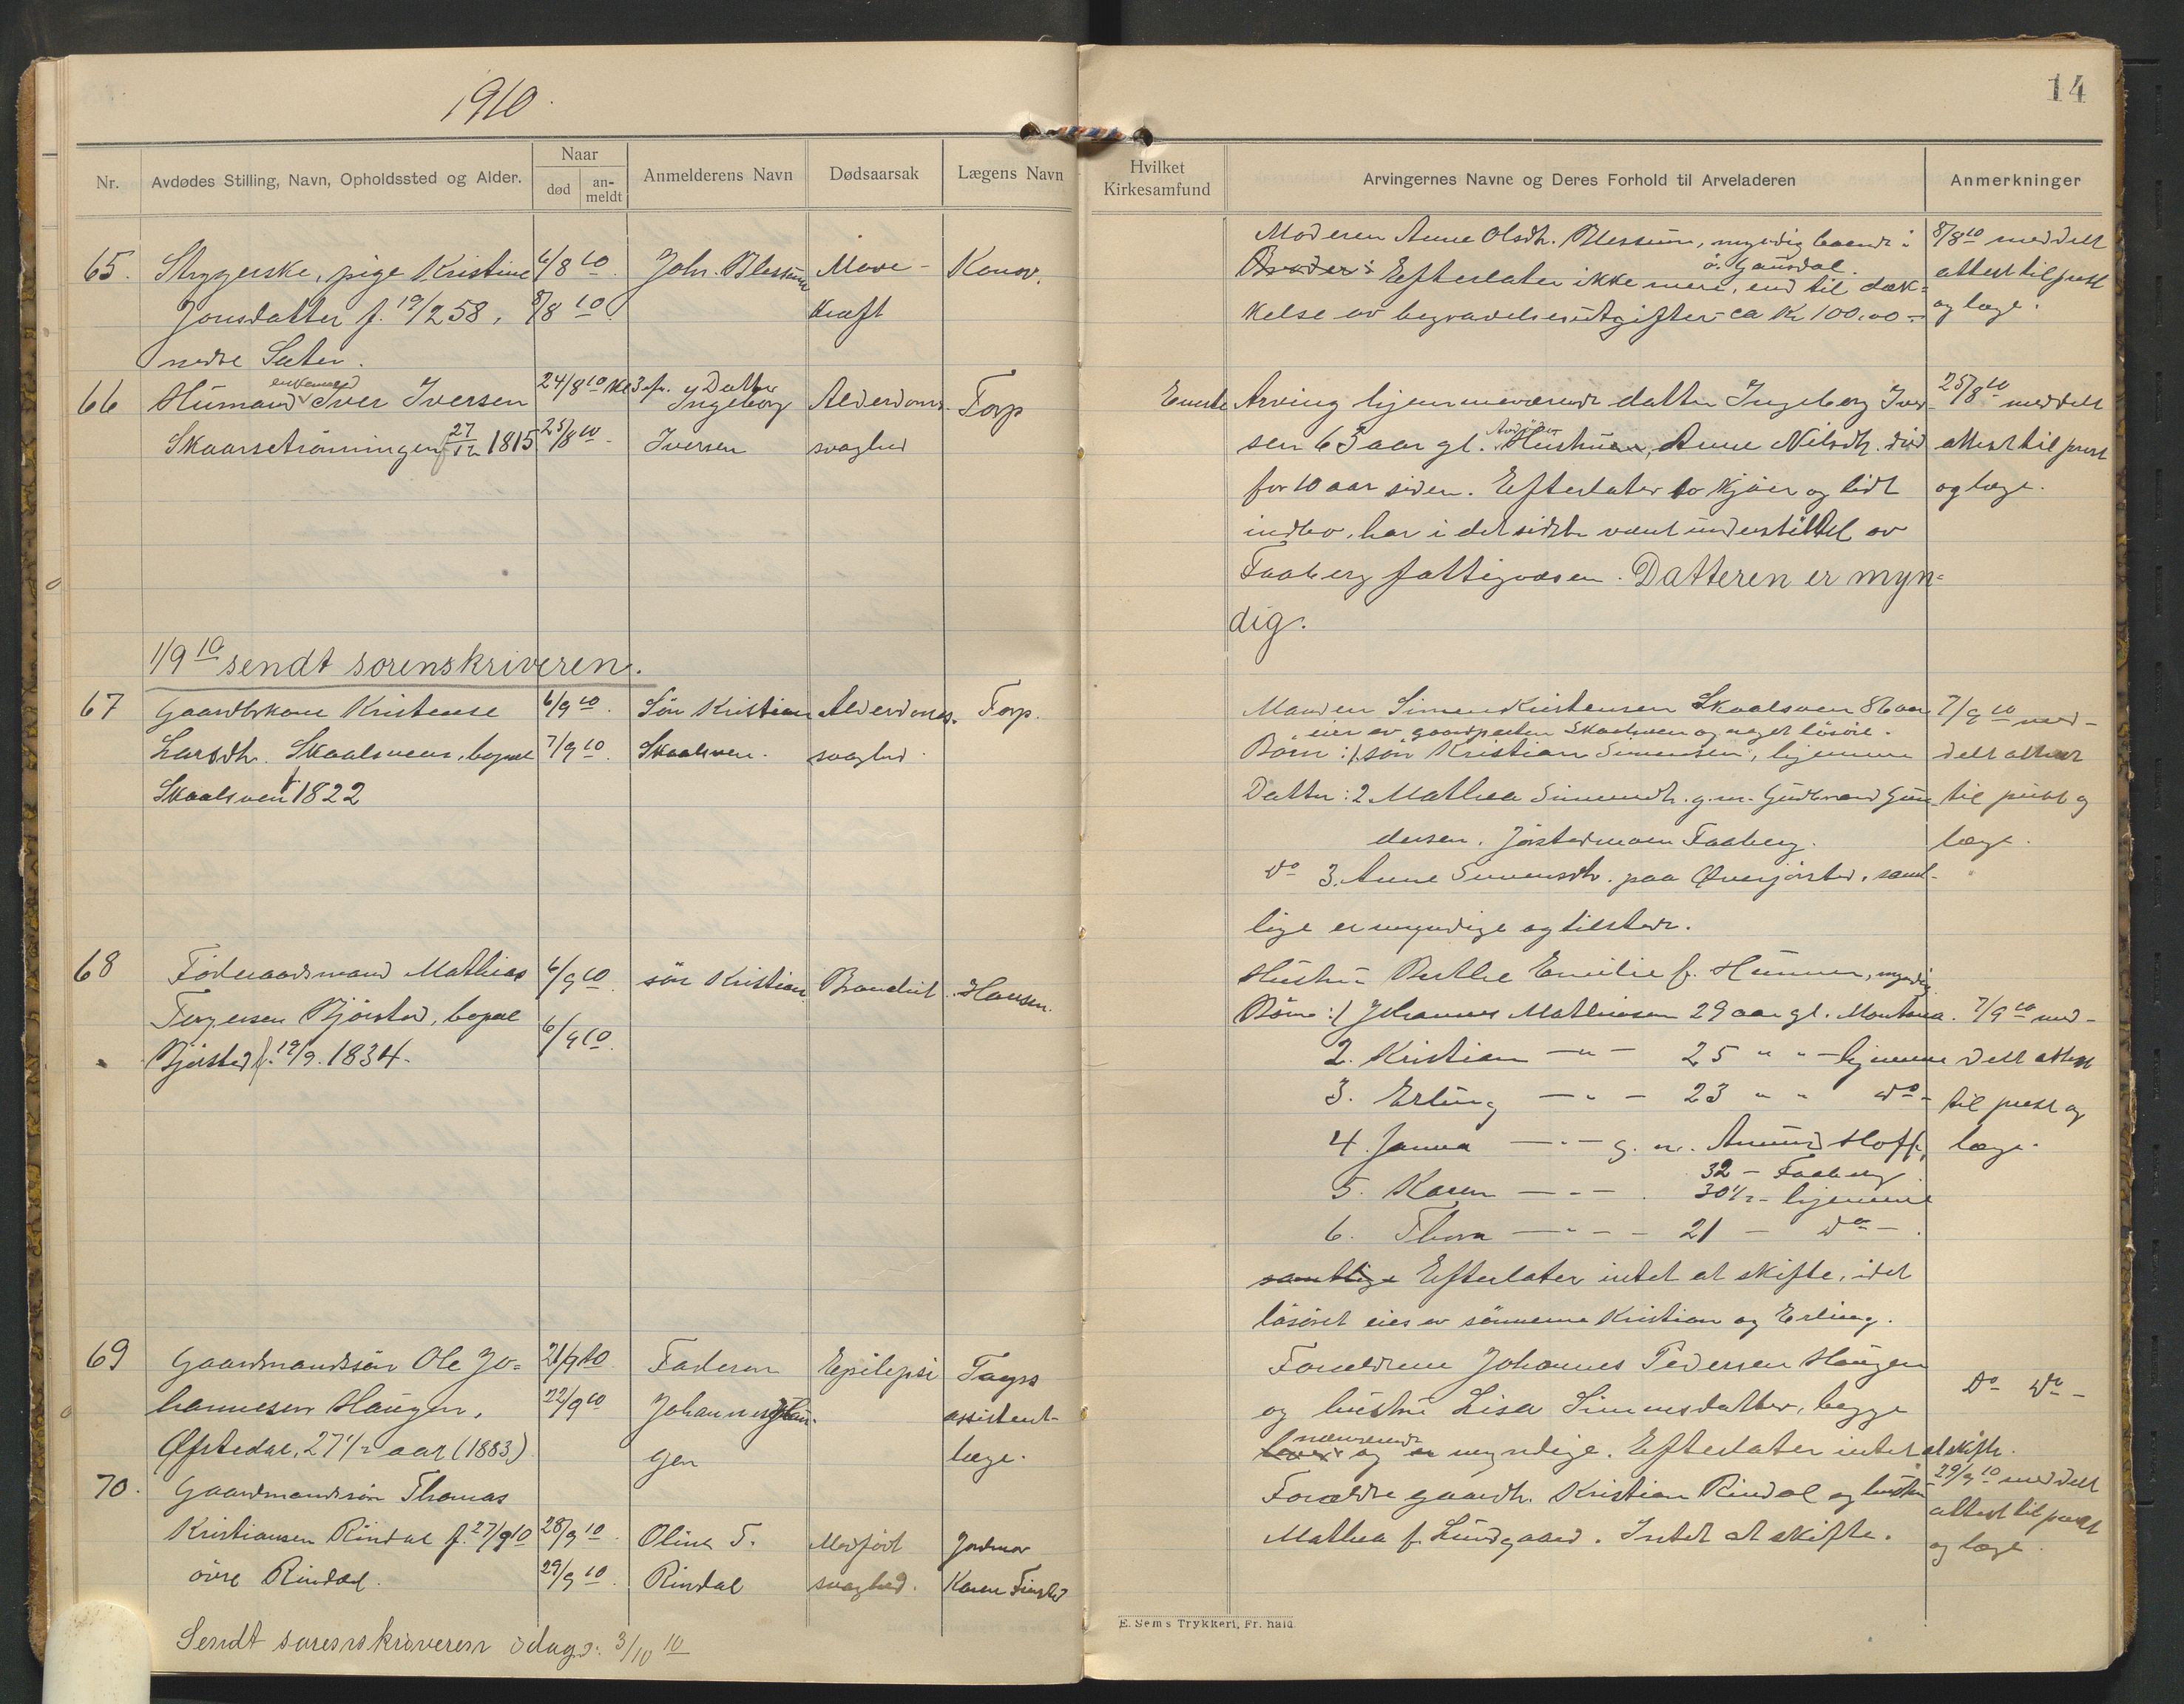 1910.
14
Nr.
Avdødes Stilling, Navn, Opholdssted og Alder.
Naar
død
an-
meldt
Anmelderens Navn
Dødsaarsak
Lægens Navn
Hvilket
Kirkesamfund
Arvingernes Navne og Deres Forhold til Arveladeren
Anmerkninger
65. Strygerske, pige Kristine
Jonsdatter f. 19/2 58,
nedre Sæter.
6/8 10.
8/8 10.
Johs. Blessum
Mave-
kræft
Konow.
Moderen Anne Olsdtr. Blessum, myndig boende i
ö. Gausdal.
Efterlater ikke mere, end til dæk-
kelse av begravelsesutgifter ca kr 100.00-
8/8 10 meddelt
attest til prest
og læge.
66 Husmand enkemand Iver Iversen
Skaarsetrønningen f 27/12 1815.
24/8 10 kl 3 efr.
25/8 10.
Datter
Ingeborg
Iversen
Alderdoms-
svaghed
Torp
Eneste Arving hjemmeværende datter Ingeborg Iver-
sen 65 aar gl. Avdödes Hustru, Anne Nilsdtr. död
for 10 aar siden. Efterlater to kjöer og lidt
indbo, har i det sidste været understöttet av
Faaberg fattigvæsen. Datteren er myn-
dig.
25/8 10 meddelt
attest til prest
og læge.
1/9 10 sendt sorenskriveren.
67 Gaardbrkone Kristense
Larsdtr. Skaalsveen, bopæl
Skaalsveen f 1822
6/9 10.
7/9 10.
Sön Kristian
Skaalsveen.
Alderdoms-
svaghed.
Torp.
Manden Simen Kristensen Skaalsveen 86 aar
eier av gaardparten Skaalsveen og noget lösöre.
Börn: 1. sön Kristian Simensen, hjemme
Datter: 2. Mathea Simensdtr. g.m. Gudbrand Gun-
dersen. Jörstadmoen Faaberg.
do 3. Anne Simensdtr. paa Øverjörstad, samt-
lige er myndige og tilstede.
7/9 10 med-
delt attest
til prest og
læge.
68 Föderaadsmand Mathias
Torgersen Bjørstad, bopæl
Bjørstad f. 19/9. 1834.
6/9 10.
6/9 10.
sön Kristian
Hansen.
Hustru Berthe Emilie f. Hunner, myndig
Börn: 1 Johannes Mathiasen 29 aar gl. Montana.
2. Kristian —"— 25 " " — hjemme
3. Erling —"— 23 " " do-
4. Janna —"— g. m. Amund Hoff,
32 — Faaberg
5. Karen —"— 30 1/2 - hjemme
6. Thora —"— 21 — do-
samtlige Efterlater intet at skifte, idet
lösöret eies av sönnerne Kristian og Erling.
7/9 10 med-
delt attest
til prest og
læge.
69 Gaardmandssön Ole Jo-
hannesen Haugen,
Øfstedal, 27 1/2 aar (1883)
21/9 10
22/9 10
Faderen
Johannes Hau-
gen
Epilepsi
assistent-
læge.
Forældrene Johannes Pedersen Haugen
og hustru Lisa Simensdatter, begge
nærværende og myndige. Efterlater intet at skifte.
Do Do-
70. Gaardmandssön Thomas
Kristiansen Rindal f. 27/9 10
övre Rindal.
28/9 10.
29/9 10.
Oline T.
Rindal
Medfödt
svaghed.
Jordmor
Karen
Forældre gaardbr. Kristian Rindal og hustru
Mathea f. Lundgaard. Intet at skifte.
29/9 10 meddelt
attest til prest
og læge.
Sendt sorenskriveren idag. 3/10 10
E. Sems Trykkeri, Fr.hald